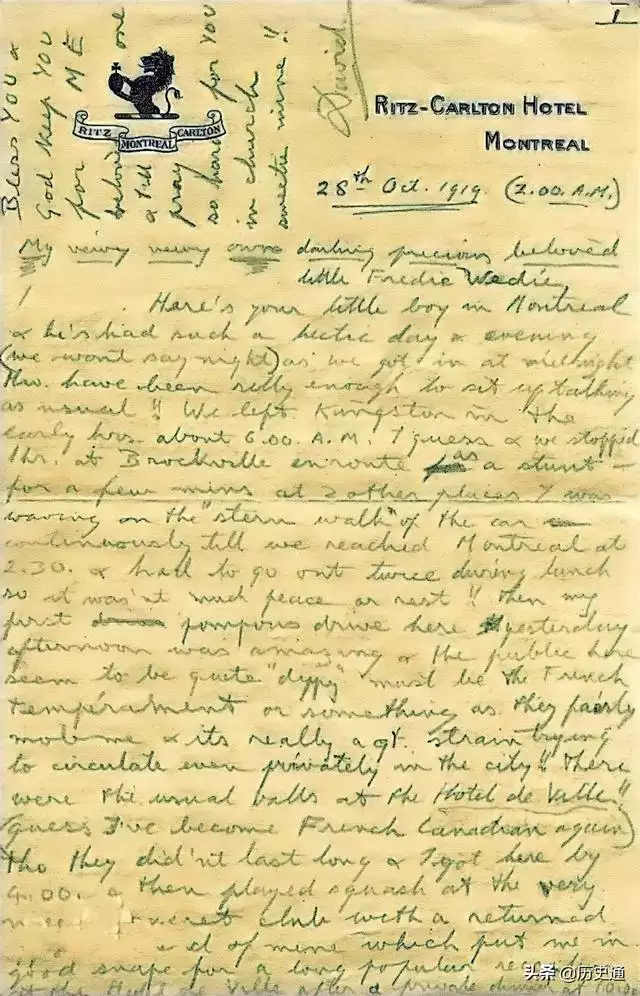 I
Bless YOU &
God keep YOU
for ME
one
& I'll
pray
so hard for YOU
in church
sweetie mine!!
David.
RITZ MONTREAL CARLTON
RITZ-CARLTON HOTEL
MONTREAL
28th Oct. 1919. (2.00. A.M.)
My vewy vewy own darling precious beloved
little Fredie Wedie,
Here's your little boy in Montreal
& he's had such a hectic day & evening
(we won't say night) as we got in at midnight
tho. have been silly enough to sit up talking
as usual!! We left Kingston in the
early hrs. about 6.00. A.M. I guess & we stopped
1hr. at Brockville enroute as a stunt —
for a few mins at 2 other places I was
waving on the "stern walk" of the car
continuously till we reached Montreal at
2.30. & had to go out twice during lunch
so it was'nt much peace or rest!! Then my
first pompous drive here yesterday
afternoon was amazing & the public here
seem to be quite "dippy" must be the French
temperament or something as they fairly
mob me & its really a gt. strain trying
to circulate even privately in the city!! There
were the usual balls at the Hotel de Ville!!
(guess I've become French Canadian again)
tho they did'nt last long & I got here by
4.00. & then played squash at the very
club with a returned
of mine which put me in
good shape for a long popular
at the Hotel de Ville after a private dinner at
头条 @历史通